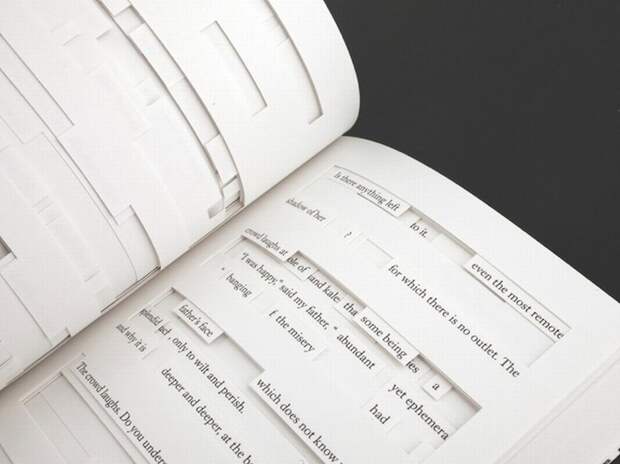 Is there anything left
to it.
even the most remote
shadow of her
?
for which there is no outlet. The
crowd laughs at
"I was happy," said my father, "
abundant
hanging
some being
a
father's face
the misery
yet ephemera
splendid
and why it is
only to wilt and perish.
which does not know
had
deeper and deeper, at the b
The crowd laughs. Do you under